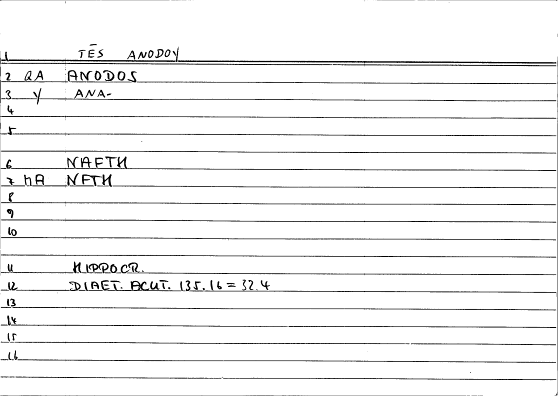 1 TĒS ANODOY
2 QA ANODOS
3 Y ANA-
4
5
6 NAFTH
7 MA NFTH
8
9
10
11 HIPPOCR.
12 DIAET. ACUT. 135.16 = 32.4
13
14
15
16